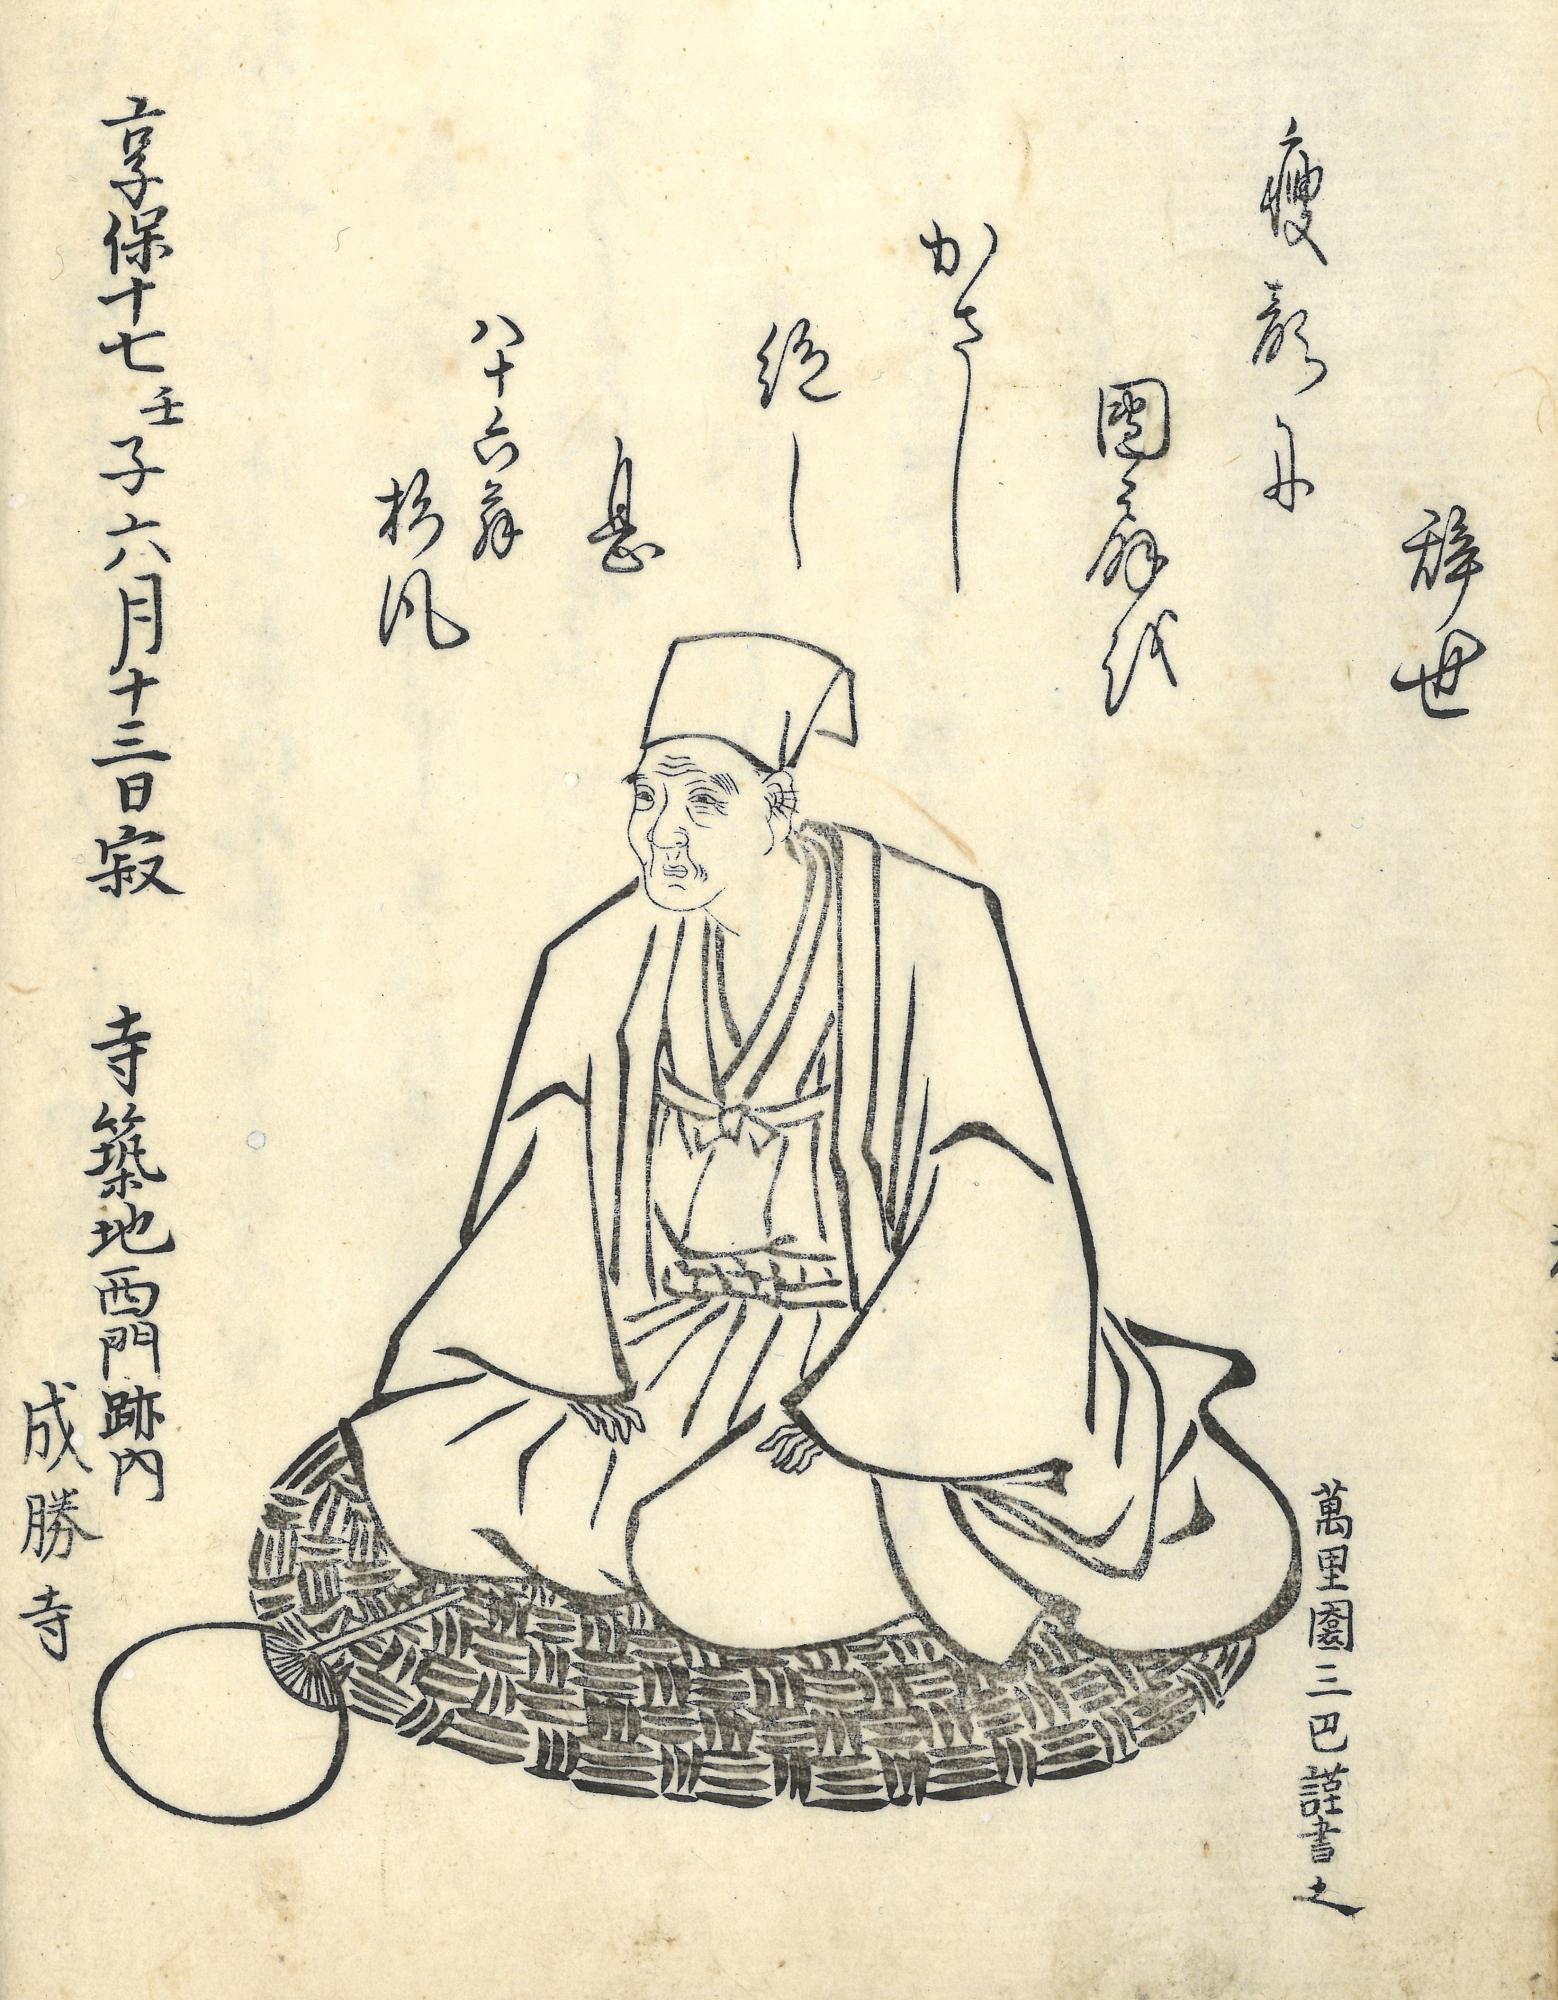 辞世
痩顔に
團扇を
かさし
絶し
息
八十六翁
杉風
享保十七壬子六月十三日寂　寺築地西門跡内
成勝寺
萬里園三巴謹書之